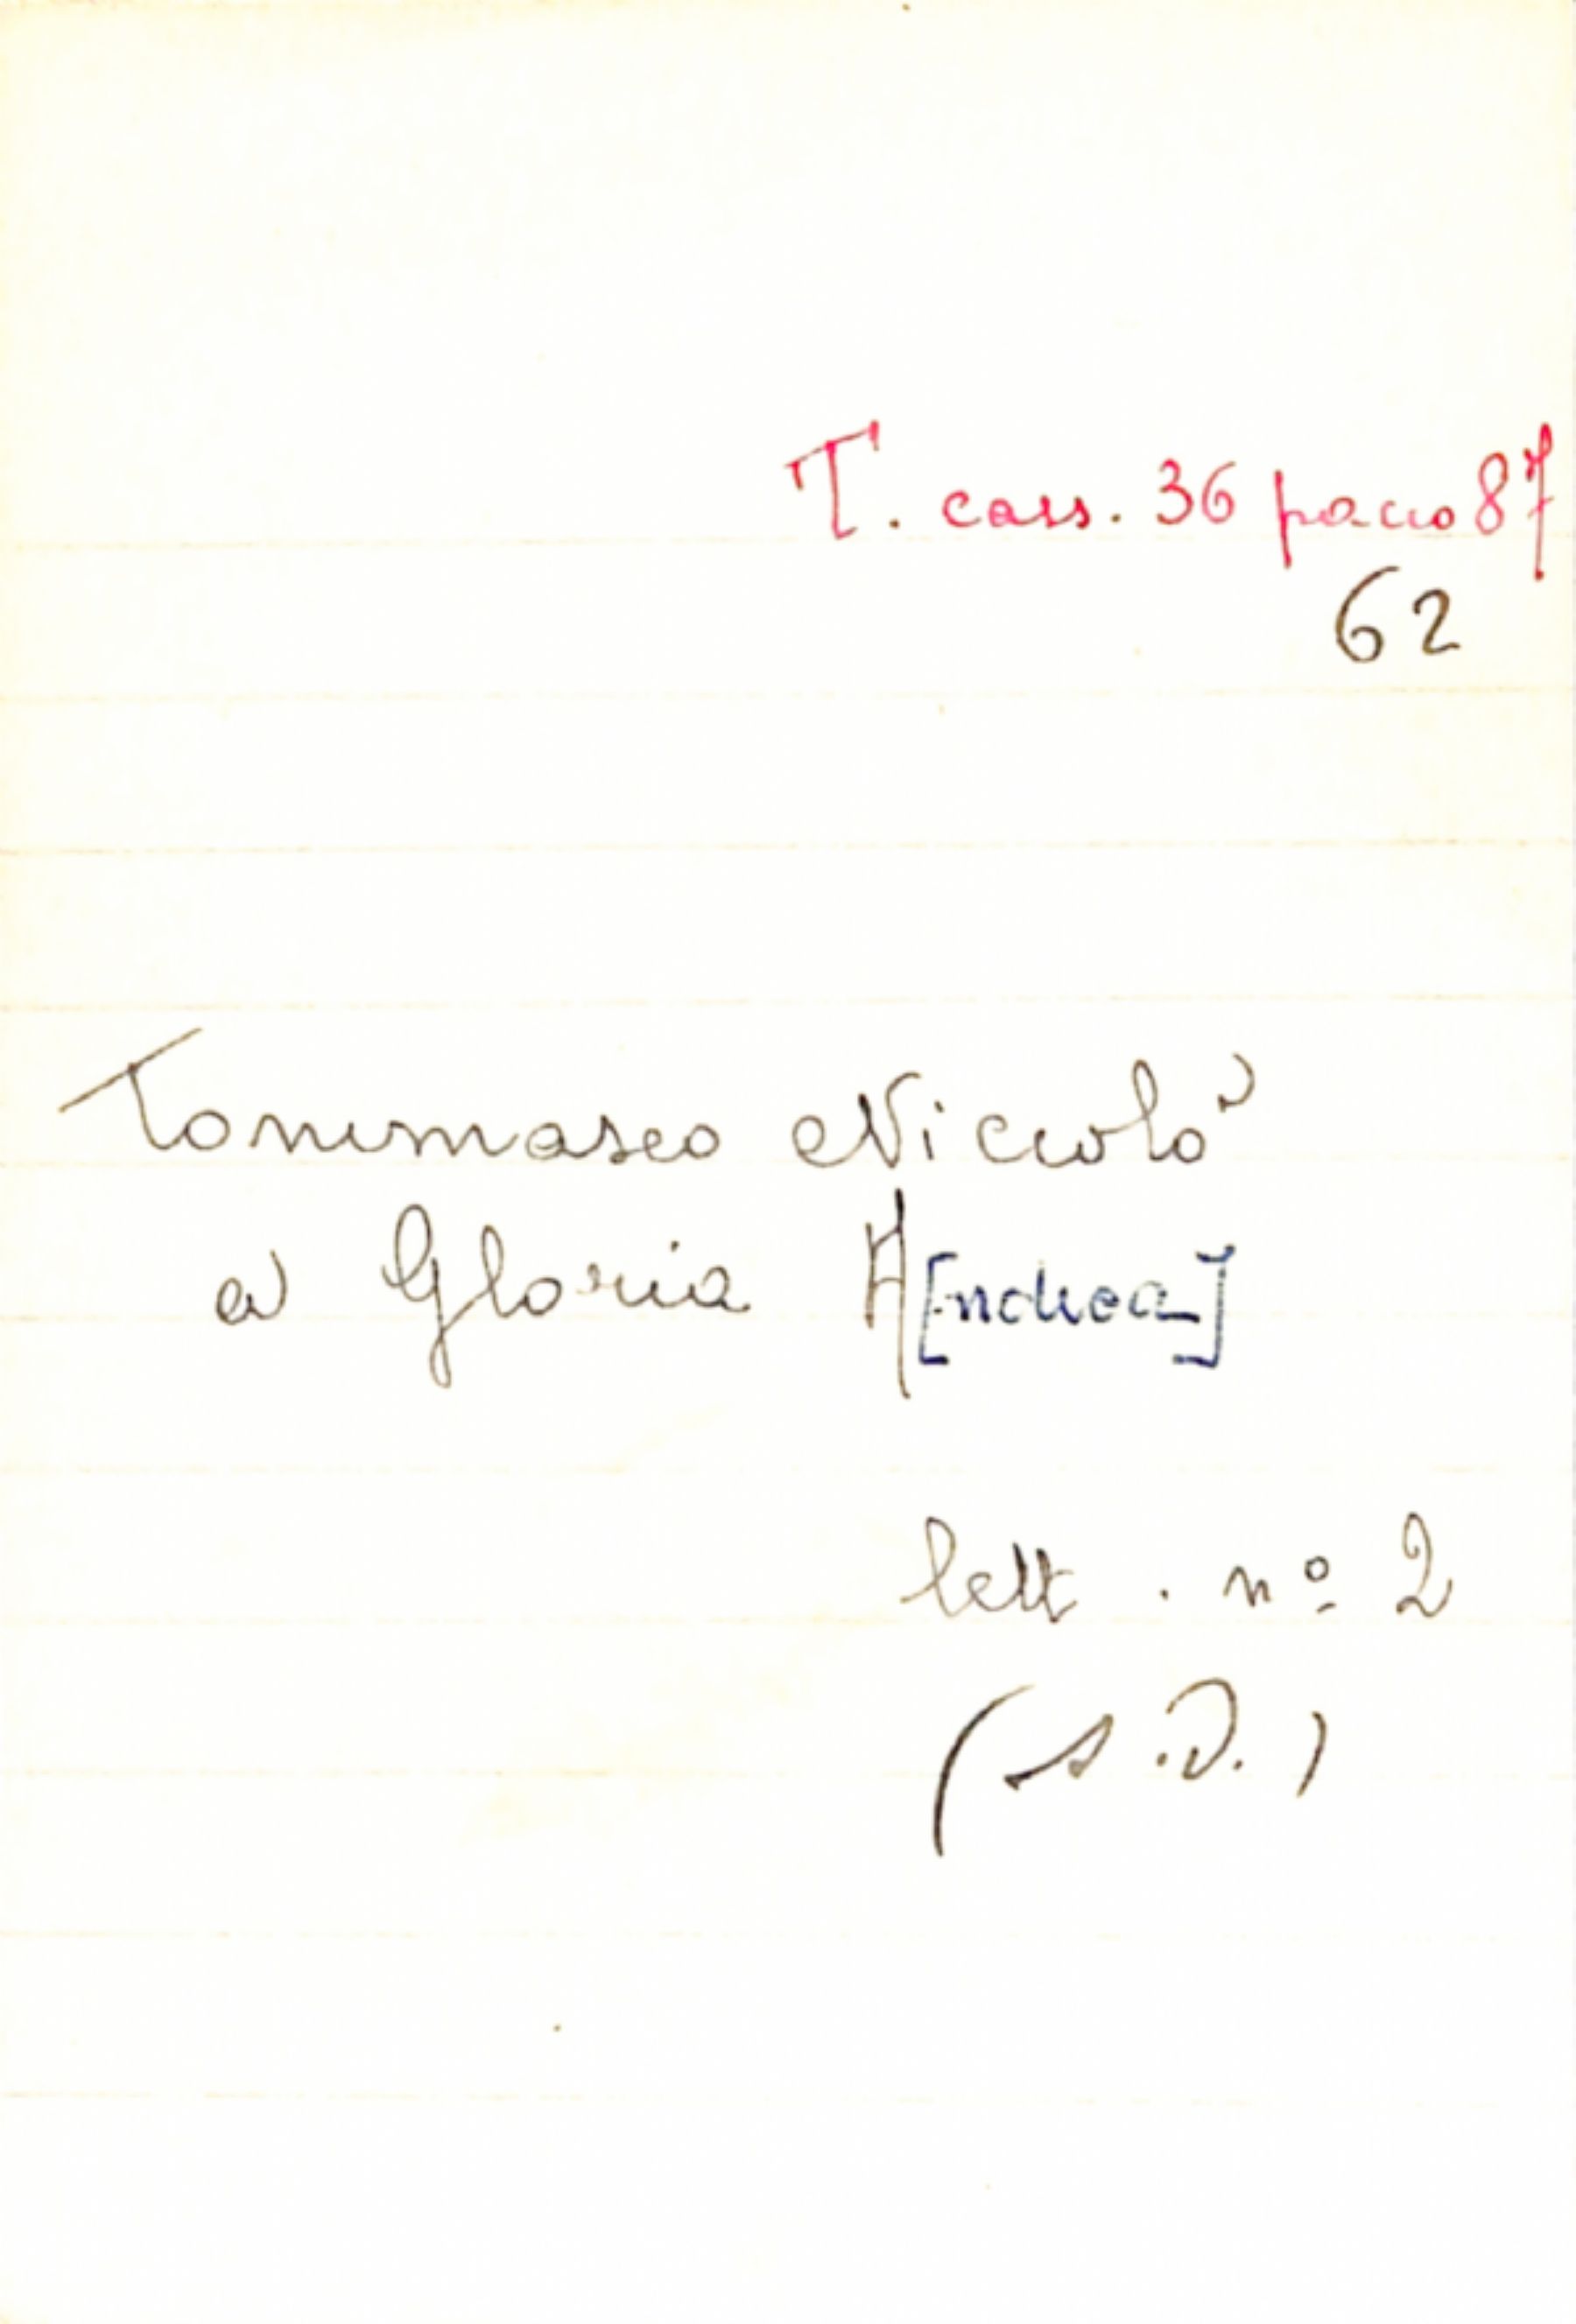 T. cass. 36 pacco 87
62
Tommaseo Niccolò
a Gloria A[ndrea]
lett. nº 2
(s.d.)